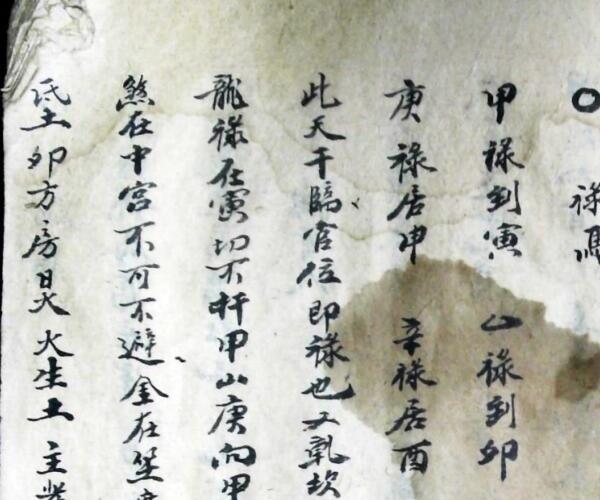 ○ 祿馬
甲祿到寅 乙祿到卯
庚祿居申 辛祿居酉
此天干臨官位即祿也又乾坎
龍祿在寅切不扦甲山庚向甲
煞在中宮不可不避金在坐
氐土卯方房日火生土主